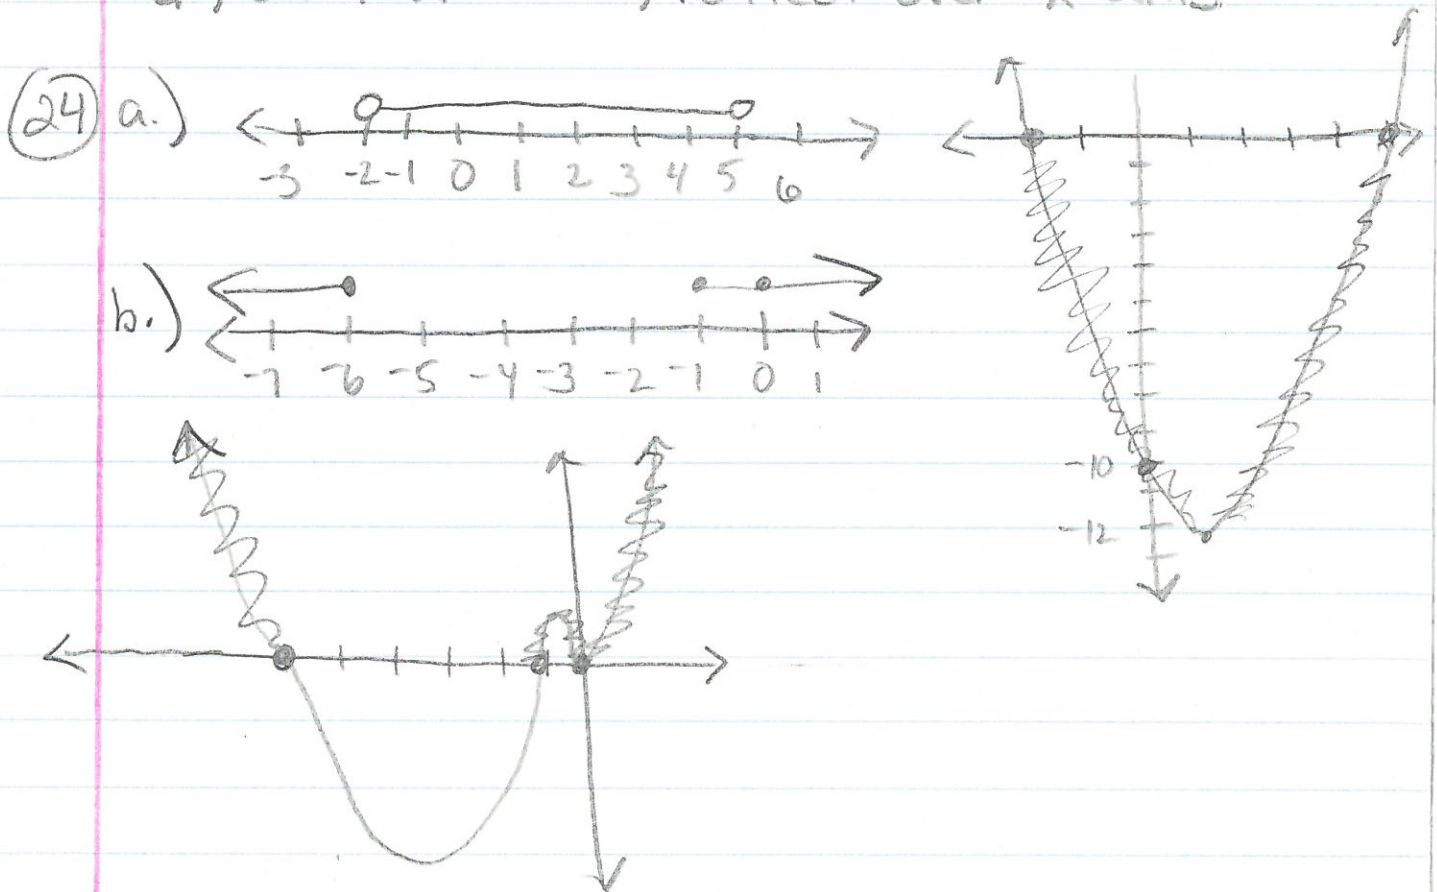 24 a.)
-3 -2 -1 0 1 2 3 4 5 6
b.)
-7 -6 -5 -4 -3 -2 -1 0 1
-10
-12